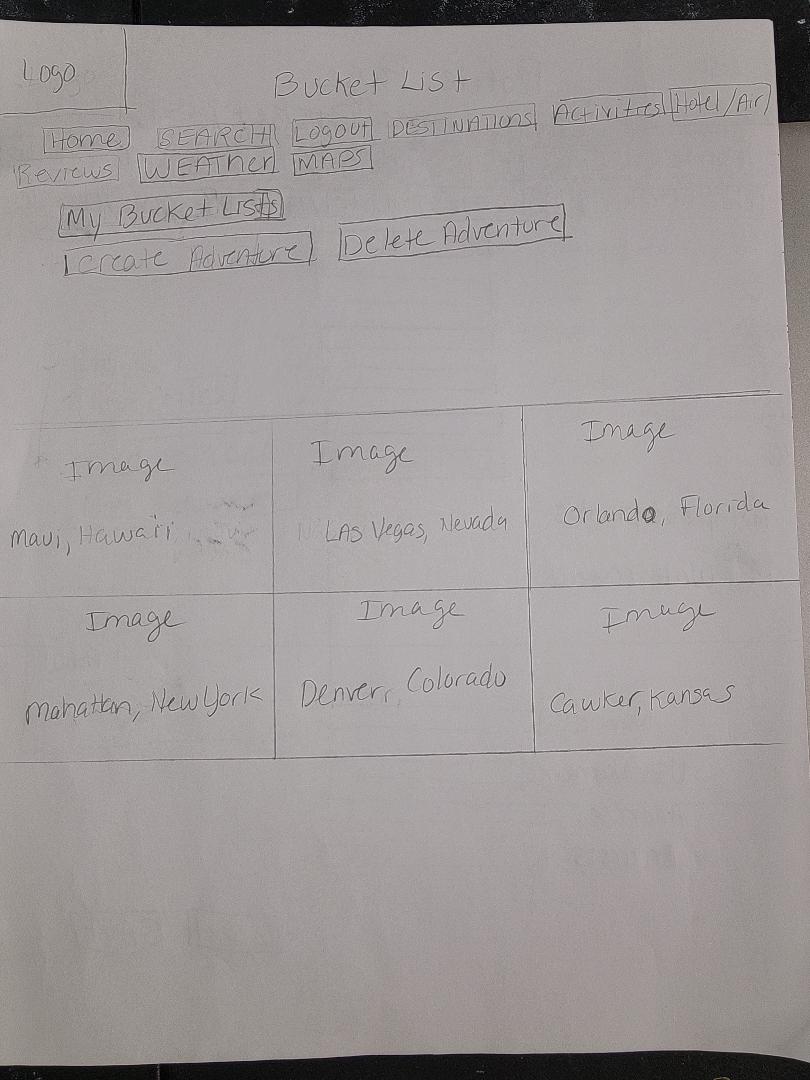 Logo
Bucket List
Home SEARCH Logout DESTINATIONS Activities Hotel/Air
Reviews WEATHER MAPS
My Bucket Lists
Create Adventure Delete Adventure
Image Image Image
Maui, Hawaii Las Vegas, Nevada Orlando, Florida
Image Image Image
Mahattan, New York Denver, Colorado Cawker, Kansas